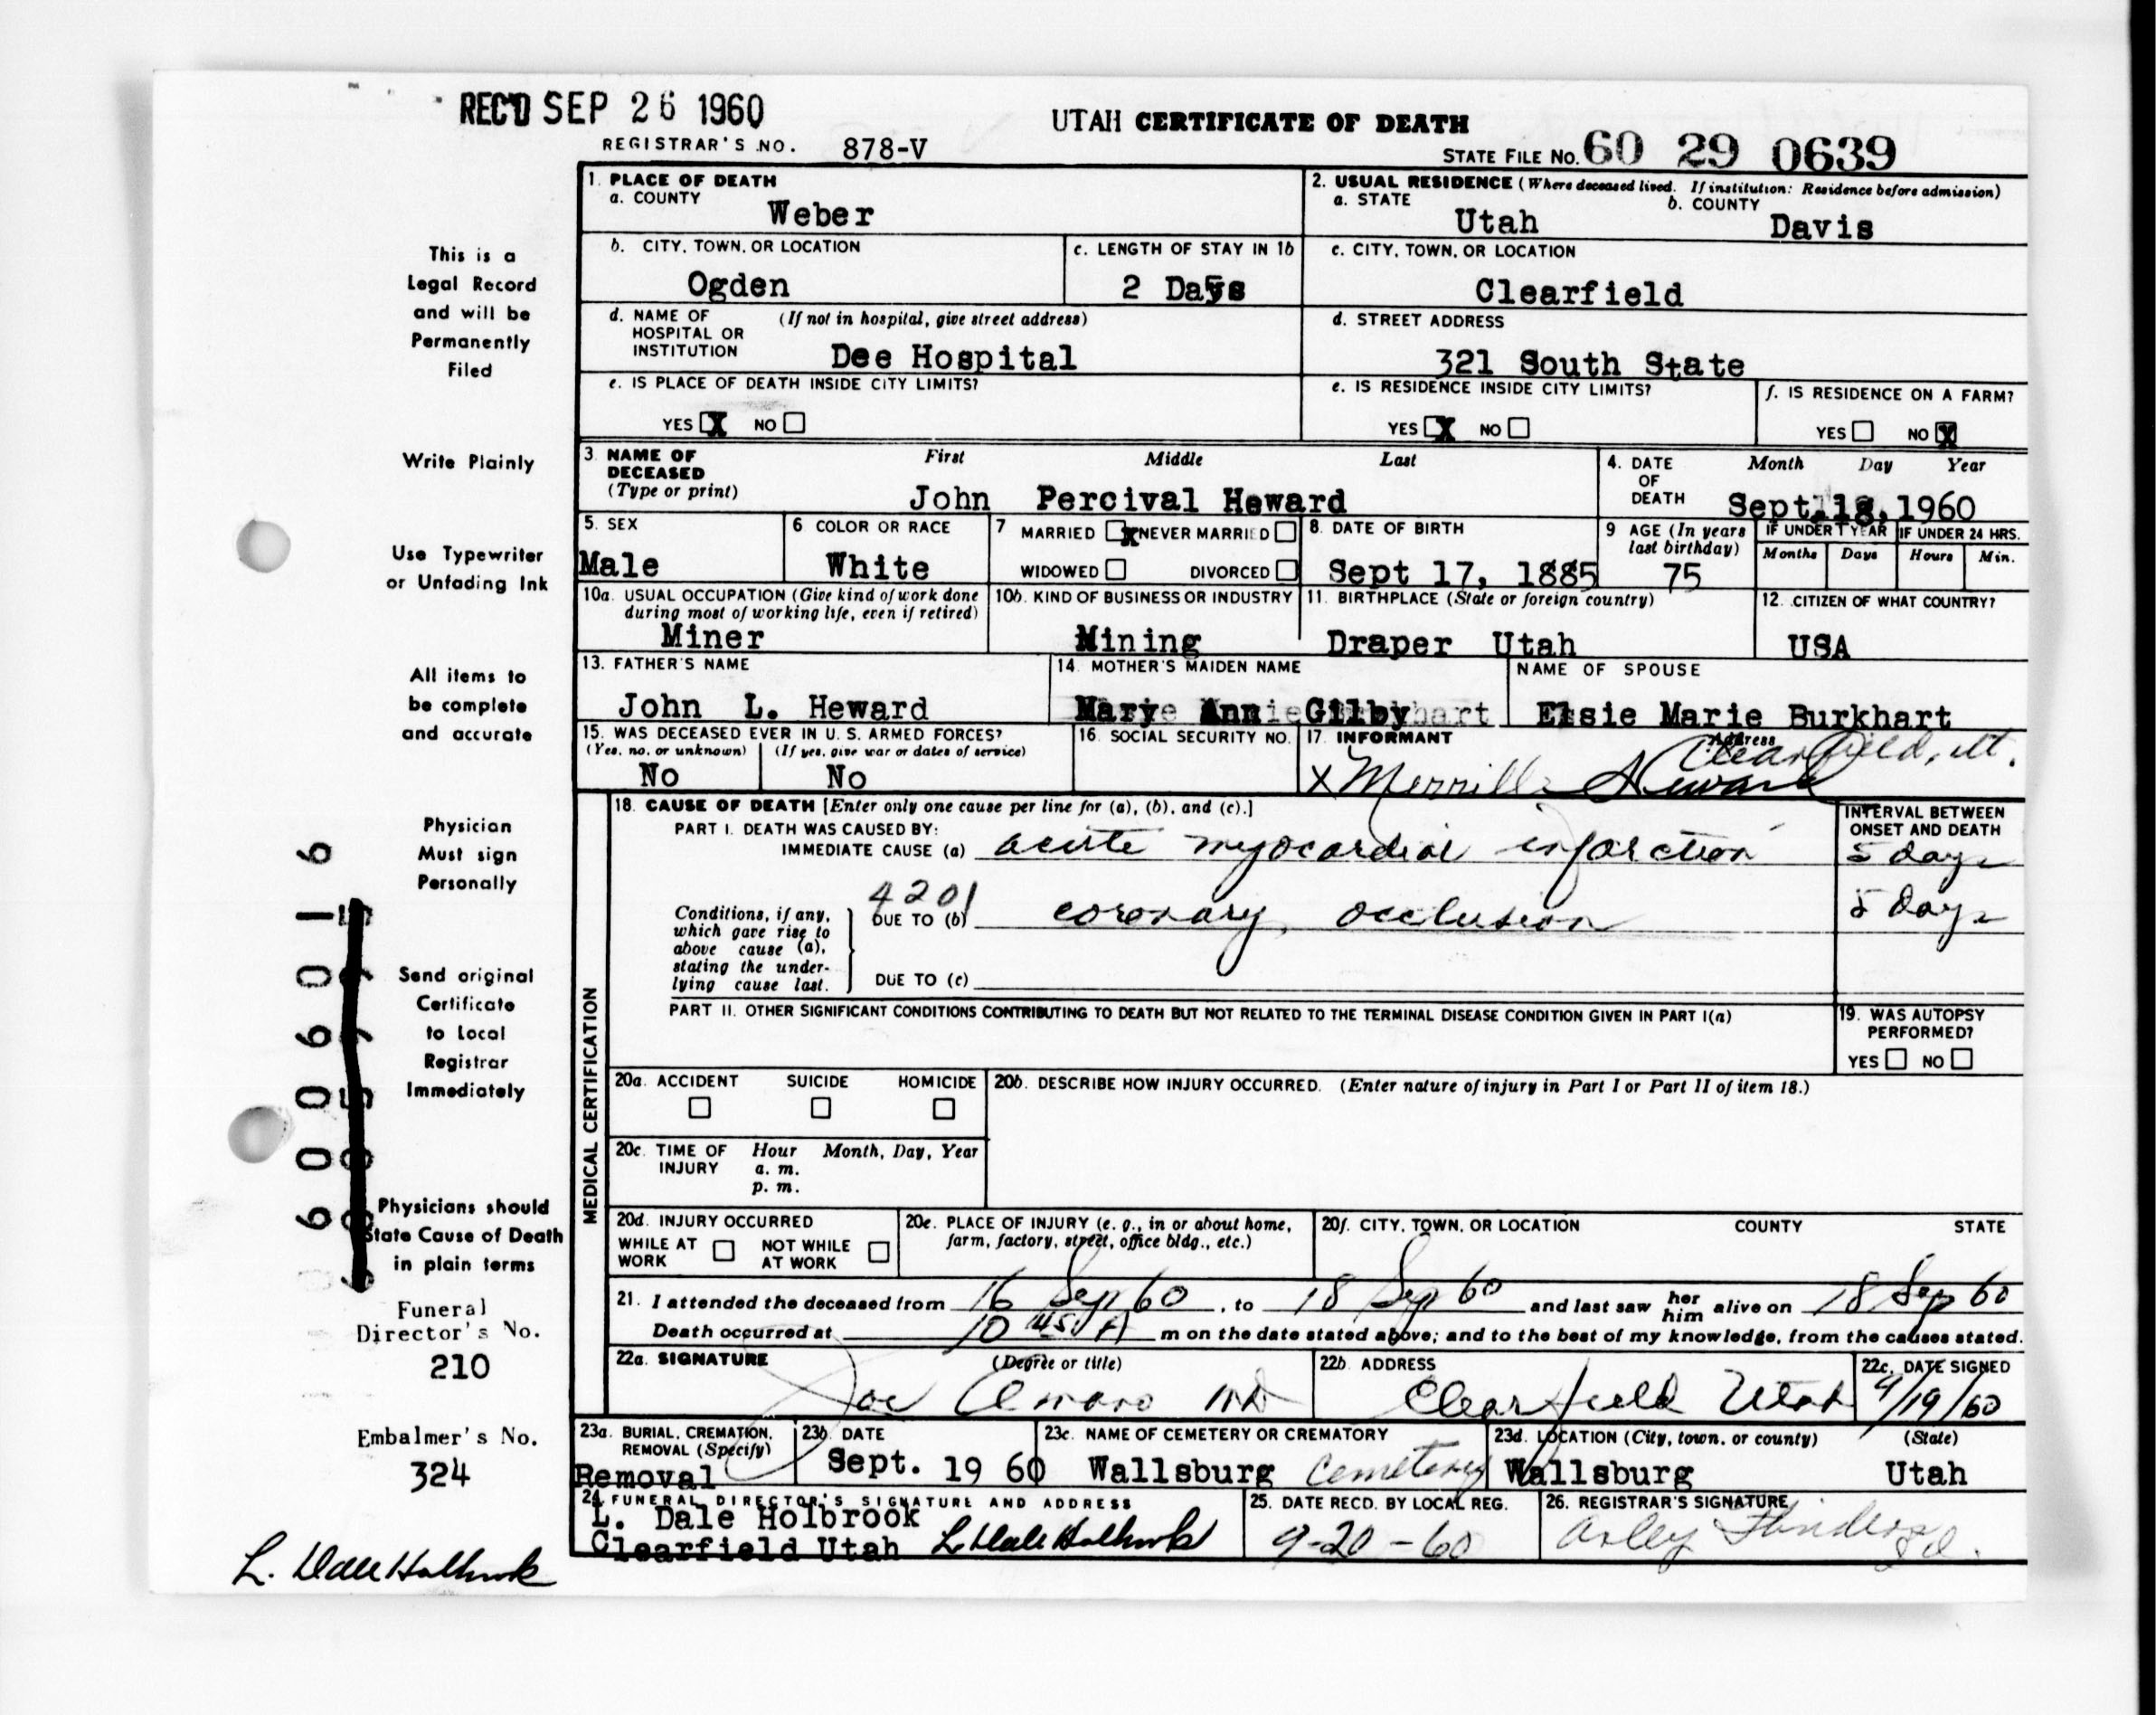 REC'D SEP 26 1960
UTAH CERTIFICATE OF DEATH
REGISTRAR'S NO. 878-V
STATE FILE NO. 60 29 0639
This is a
Legal Record
and will be
Permanently
Filed
Write Plainly
Use Typewriter
or Unfading Ink
All items to
be complete
and accurate
Physician
Must sign
Personally
Send original
Certificate
to Local
Registrar
Immediately
Physicians should
State Cause of Death
in plain terms
Funeral
Director's No.
210
Embalmer's No.
324
L. Dale Holbrook
600601 6
1. PLACE OF DEATH
a. COUNTY
Weber
2. USUAL RESIDENCE (Where deceased lived. If institution: Residence before admission)
a. STATE Utah b. COUNTY Davis
b. CITY, TOWN, OR LOCATION
Ogden
c. LENGTH OF STAY IN 1b
2 Days
c. CITY, TOWN, OR LOCATION
Clearfield
d. NAME OF (If not in hospital, give street address)
HOSPITAL OR
INSTITUTION Dee Hospital
d. STREET ADDRESS
321 South State
e. IS PLACE OF DEATH INSIDE CITY LIMITS?
YES X NO
e. IS RESIDENCE INSIDE CITY LIMITS?
YES X NO
f. IS RESIDENCE ON A FARM?
YES NO X
3. NAME OF First Middle Last
DECEASED
(Type or print) John Percival Heward
4. DATE Month Day Year
OF
DEATH Sept. 18, 1960
5. SEX
Male
6 COLOR OR RACE
White
7 MARRIED X NEVER MARRIED
WIDOWED DIVORCED
8. DATE OF BIRTH
Sept 17, 1885
9 AGE (In years
last birthday)
75
IF UNDER 1 YEAR
Months Days
IF UNDER 24 HRS.
Hours Min.
10a. USUAL OCCUPATION (Give kind of work done
during most of working life, even if retired)
Miner
10b. KIND OF BUSINESS OR INDUSTRY
Mining
11. BIRTHPLACE (State or foreign country)
Draper Utah
12. CITIZEN OF WHAT COUNTRY?
USA
13. FATHER'S NAME
John L. Heward
14. MOTHER'S MAIDEN NAME
Mary Ann Gilby
NAME OF SPOUSE
Elsie Marie Burkhart
15. WAS DECEASED EVER IN U. S. ARMED FORCES?
(Yes, no, or unknown) (If yes, give war or dates of service)
No No
16. SOCIAL SECURITY NO.
17. INFORMANT Address
Clearfield, Ut.
X Merrill Heward
MEDICAL CERTIFICATION
18. CAUSE OF DEATH [Enter only one cause per line for (a), (b), and (c).]
INTERVAL BETWEEN
ONSET AND DEATH
PART I. DEATH WAS CAUSED BY:
IMMEDIATE CAUSE (a) acute myocardial infarction 5 days
4201
Conditions, if any,
which gave rise to
above cause (a),
stating the under-
lying cause last.
DUE TO (b) coronary occlusion 5 days
DUE TO (c)
PART II. OTHER SIGNIFICANT CONDITIONS CONTRIBUTING TO DEATH BUT NOT RELATED TO THE TERMINAL DISEASE CONDITION GIVEN IN PART I(a)
19. WAS AUTOPSY
PERFORMED?
YES NO
20a. ACCIDENT SUICIDE HOMICIDE
20b. DESCRIBE HOW INJURY OCCURRED. (Enter nature of injury in Part I or Part II of item 18.)
20c. TIME OF Hour Month, Day, Year
INJURY a. m.
p. m.
20d. INJURY OCCURRED
WHILE AT NOT WHILE
WORK AT WORK
20e. PLACE OF INJURY (e. g., in or about home,
farm, factory, street, office bldg., etc.)
20f. CITY, TOWN, OR LOCATION COUNTY STATE
21. I attended the deceased from 16 Sep 60, to 18 Sep 60 and last saw her him alive on 18 Sep 60
Death occurred at 10 45 A m on the date stated above; and to the best of my knowledge, from the causes stated.
22a. SIGNATURE (Degree or title)
Joe Amano MD
22b. ADDRESS
Clearfield Utah
22c. DATE SIGNED
9/19/60
23a. BURIAL, CREMATION,
REMOVAL (Specify)
Removal
23b. DATE
Sept. 19 60
23c. NAME OF CEMETERY OR CREMATORY
Wallsburg Cemetery
23d. LOCATION (City, town, or county) (State)
Wallsburg Utah
24. FUNERAL DIRECTOR'S SIGNATURE AND ADDRESS
L. Dale Holbrook
Clearfield Utah L Dale Holbrook
25. DATE RECD. BY LOCAL REG.
9-20-60
26. REGISTRAR'S SIGNATURE